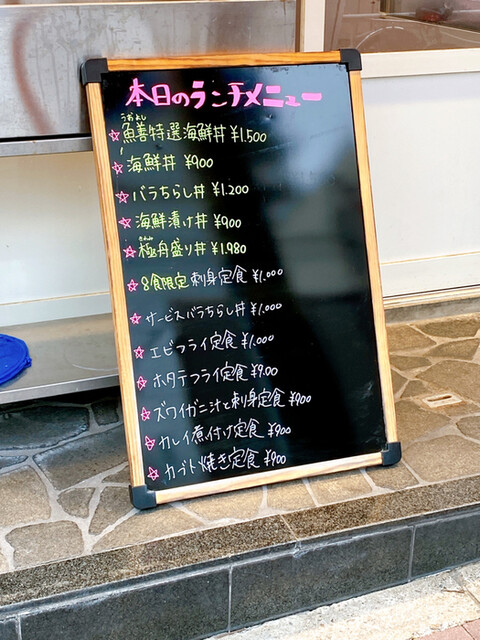 本日のランチメニュー
うおよし
☆魚善特選海鮮丼 ¥1.500
☆海鮮丼 ¥900
☆バラちらし丼 ¥1.200
☆海鮮漬け丼 ¥900
☆極舟盛り丼 ¥1.980
☆8食限定刺身定食 ¥1.000
☆サービスバラちらし丼 ¥1.000
☆エビフライ定食 ¥1.000
☆ホタテフライ定食 ¥900
☆ズワイガニ汁と刺身定食 ¥900
☆カレイ煮付け定食 ¥900
☆カブト焼き定食 ¥900